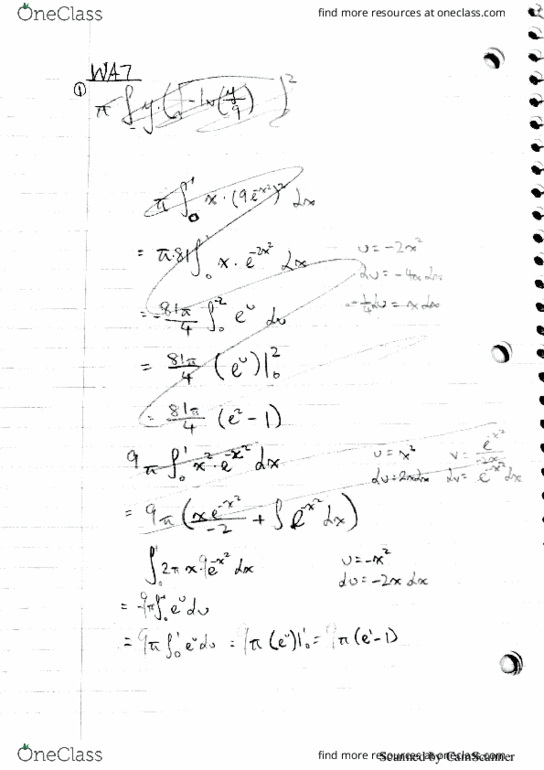 OneClass
find more resources at oneclass.com
WA7
① π ∫ y · (1 - ln(y/9))²
π ∫₀¹ x · (9e^-x²)² dx
= π·81 ∫₀¹ x · e^-2x² dx
u = -2x²
du = -4x dx
-¼ du = x dx
= -81π/4 ∫₀^-2 e^u du
= 81π/4 (e^u)|₀²
= 81π/4 (e² - 1)
9π ∫₀¹ x² · e^-x² dx
u = x² v = e^-x²/-2x
du = 2x dx dv = e^-x² dx
= 9π (xe^-x²/-2 + ∫ e^-x² dx)
∫₀¹ 2π x · 9e^-x² dx
u = -x²
du = -2x dx
= -9π ∫₀^-1 e^u du
= 9π ∫₀¹ e^u du = 9π (e^u)|₀¹ = 9π (e¹ - 1)
OneClass
find more resources at oneclass.com
Scanned by CamScanner